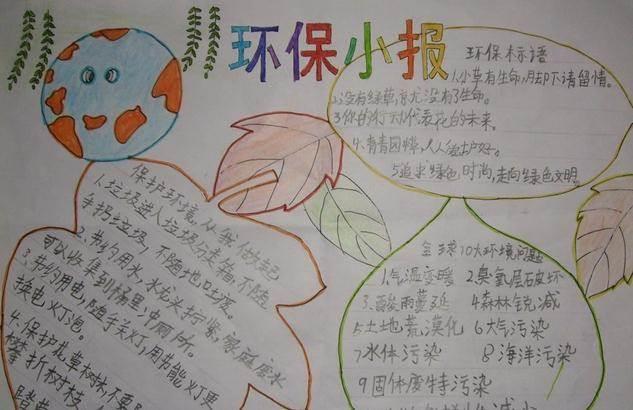 环保小报
环保标语
1.小草有生命,足下请留情。
2.没有绿草,就没有了生命。
3.你的行动代表花的未来。
4.青青园粹,人人爱护好。
5追求绿色时尚,走向绿色文明。
保护环境,从我做起
1.垃圾进入垃圾分类箱,不随
手扔垃圾,不随地吐痰。
2.节约用水,水龙头拧紧,家庭废水
可以收集到桶里,冲厕所。
3.节约用电,随手关灯,用节能灯更
换电灯泡。
4.保护花草树林,不要
攀折树枝
踏草
全球10大环境问题
1.气温变暖 2臭氧层破坏
3.酸雨蔓延 4森林锐减
5土地荒漠化 6大气污染
7水体污染 8海洋污染
9固体废特污染
减少